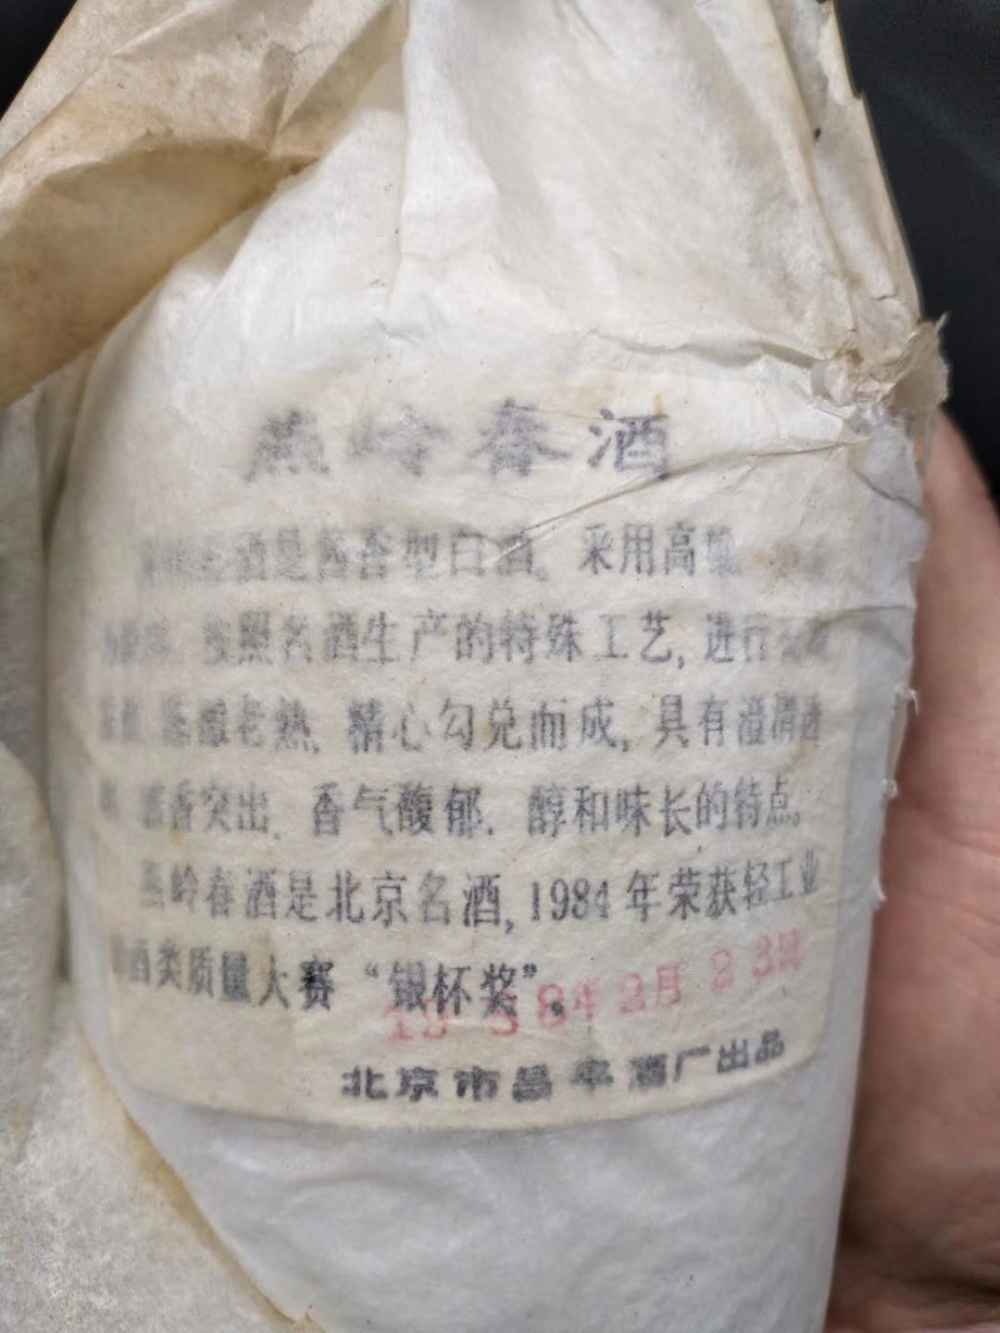 燕岭春酒
酒是酱香型白酒，采用高
按照名酒生产的特殊工艺，进行
陈酿老熟，精心勾兑而成，具有澄清透
酱香突出，香气馥郁，醇和味长的特点。
燕岭春酒是北京名酒，1984年荣获轻工业
酒类质量大赛“银杯奖”。
84 2月23日
北京市昌平酒厂出品